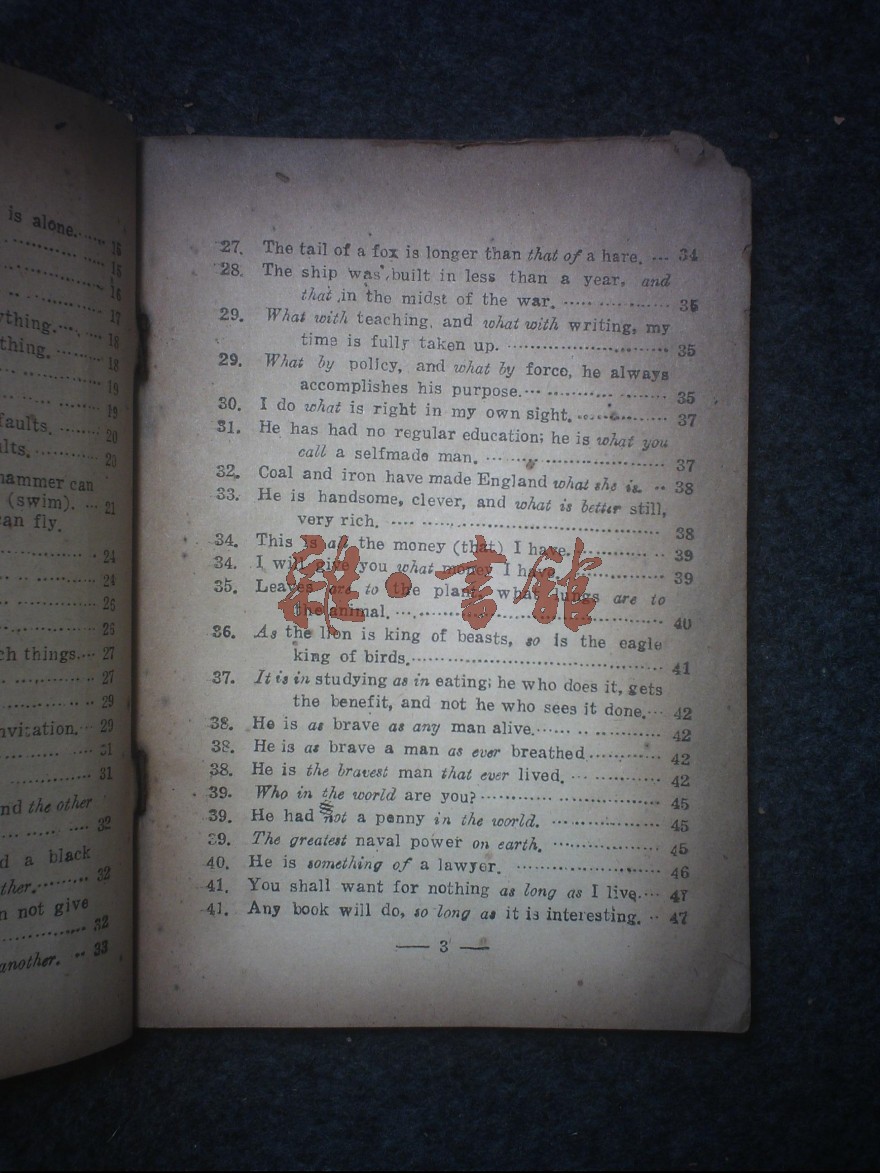 is alone. ...... 15
15
16
17
ything. ... 18
thing. ...... 18
19
19
faults. ...... 20
lts. ...... 20
hammer can
(swim). ... 21
can fly.
24
24
26
26
ch things. ... 27
27
29
nvitation. ... 29
31
31
nd the other
32
d a black
ther. ...... 32
n not give
32
another. .. 33
27. The tail of a fox is longer than that of a hare. ... 34
28. The ship was built in less than a year, and
that in the midst of the war. ...... 35
29. What with teaching, and what with writing, my
time is fully taken up. ...... 35
29. What by policy, and what by force, he always
accomplishes his purpose. ...... 35
30. I do what is right in my own sight. ...... 37
31. He has had no regular education; he is what you
call a selfmade man. ...... 37
32. Coal and iron have made England what she is. .. 38
33. He is handsome, clever, and what is better still,
very rich. ...... 38
34. This is all the money (that) I have. ...... 39
34. I will give you what money I have. ...... 39
35. Leaves are to the plant, what lungs are to
the animal. ...... 40
36. As the lion is king of beasts, so is the eagle
king of birds. ...... 41
37. It is in studying as in eating; he who does it, gets
the benefit, and not he who sees it done. ... 42
38. He is as brave as any man alive. ...... 42
38. He is as brave a man as ever breathed ...... 42
38. He is the bravest man that ever lived. ...... 42
39. Who in the world are you? ...... 45
39. He had not a penny in the world. ...... 45
39. The greatest naval power on earth. ...... 45
40. He is something of a lawyer. ...... 46
41. You shall want for nothing as long as I live. ... 47
41. Any book will do, so long as it is interesting. .. 47
— 3 —
雜·書館